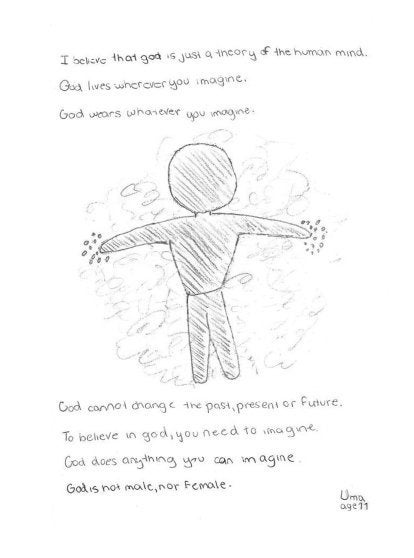 I believe that god is just a theory of the human mind.
God lives wherever you imagine.
God wears whatever you imagine.
God cannot change the past, present or future.
To believe in god, you need to imagine.
God does anything you can imagine.
God is not male, nor female.
Uma
age 11